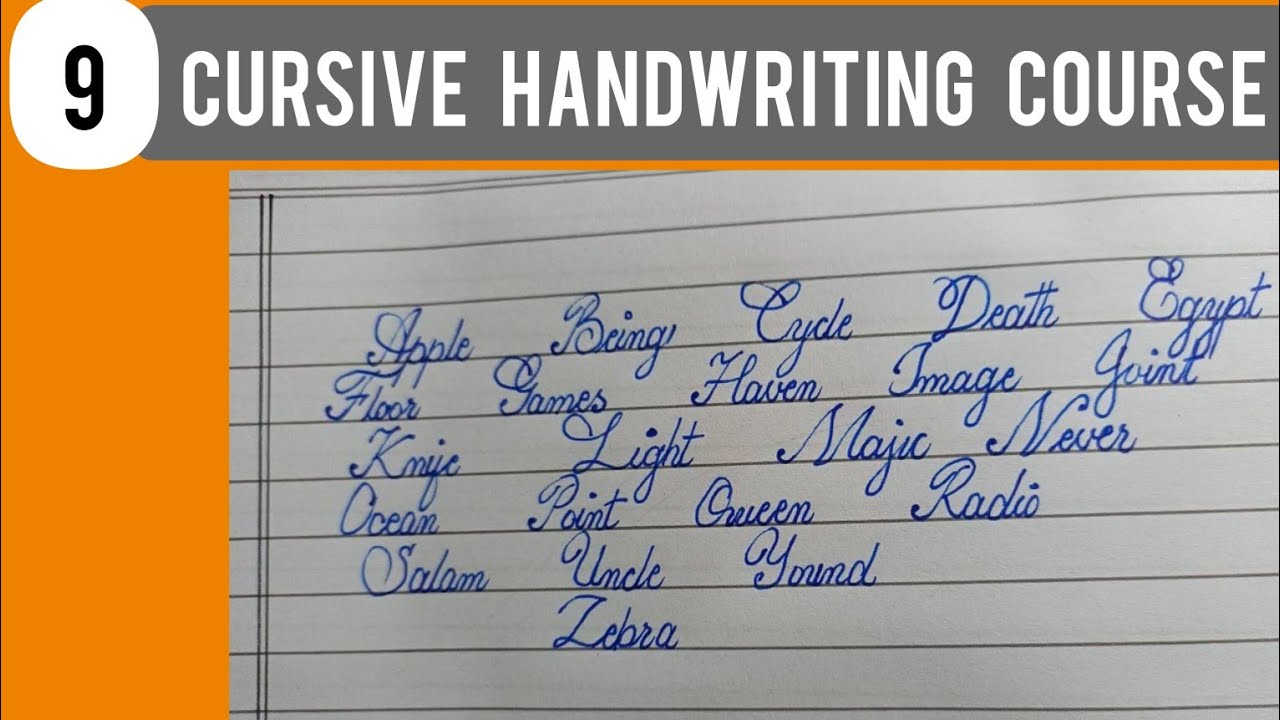 9 CURSIVE HANDWRITING COURSE
Apple Being Cycle Death Egypt
Floor Games Haven Image Joint
Knife Light Majic Never
Ocean Point Queen Radio
Salam Uncle Yound
Zebra